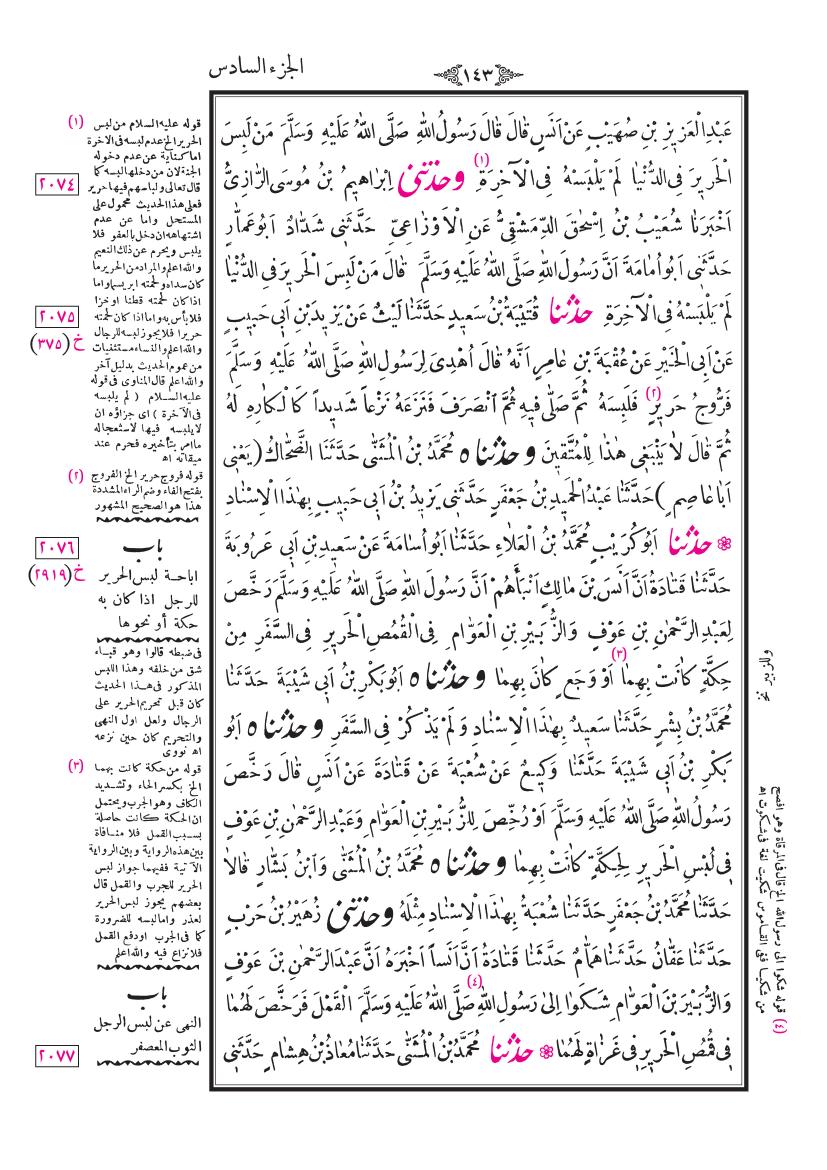 الجزء السادس
١٤٣
عَبْدِ الْعَزِيزِ بْنِ صُهَيْبٍ عَنْ اَنَسٍ قَالَ قَالَ رَسُولُ اللّٰهِ صَلَّى اللّٰهُ عَلَيْهِ وَسَلَّمَ مَنْ لَبِسَ
الْحَرِيرَ فِى الدُّنْيَا لَمْ يَلْبَسْهُ فِى الْآخِرَةِ (١) وحدثنى اِبْرَاهِيمُ بْنُ مُوسَى الرَّازِىُّ
اَخْبَرَنَا شُعَيْبُ بْنُ اِسْحٰقَ الدِّمَشْقِىُّ عَنِ الْاَوْزَاعِىِّ حَدَّثَنِى شَدَّادٌ اَبُو عَمَّارٍ
حَدَّثَنِى اَبُو اُمَامَةَ اَنَّ رَسُولَ اللّٰهِ صَلَّى اللّٰهُ عَلَيْهِ وَسَلَّمَ قَالَ مَنْ لَبِسَ الْحَرِيرَ فِى الدُّنْيَا
لَمْ يَلْبَسْهُ فِى الْآخِرَةِ حدثنا قُتَيْبَةُ بْنُ سَعِيدٍ حَدَّثَنَا لَيْثٌ عَنْ يَزِيدَ بْنِ اَبِى حَبِيبٍ
عَنْ اَبِى الْخَيْرِ عَنْ عُقْبَةَ بْنِ عَامِرٍ اَنَّهُ قَالَ اُهْدِىَ لِرَسُولِ اللّٰهِ صَلَّى اللّٰهُ عَلَيْهِ وَسَلَّمَ
فَرُّوجُ حَرِيرٍ (٢) فَلَبِسَهُ ثُمَّ صَلَّى فِيهِ ثُمَّ انْصَرَفَ فَنَزَعَهُ نَزْعاً شَدِيداً كَالْكَارِهِ لَهُ
ثُمَّ قَالَ لَا يَنْبَغِى هٰذَا لِلْمُتَّقِينَ وحدثناه مُحَمَّدُ بْنُ الْمُثَنّٰى حَدَّثَنَا الضَّحَّاكُ (يَعْنِى
اَبَا عَاصِمٍ) حَدَّثَنَا عَبْدُ الْحَمِيدِ بْنُ جَعْفَرٍ حَدَّثَنِى يَزِيدُ بْنُ اَبِى حَبِيبٍ بِهٰذَا الْاِسْنَادِ
❁ حدثنا اَبُو كُرَيْبٍ مُحَمَّدُ بْنُ الْعَلَاءِ حَدَّثَنَا اَبُو اُسَامَةَ عَنْ سَعِيدِ بْنِ اَبِى عَرُوبَةَ
حَدَّثَنَا قَتَادَةُ اَنَّ اَنَسَ بْنَ مَالِكٍ اَنْبَأَهُمْ اَنَّ رَسُولَ اللّٰهِ صَلَّى اللّٰهُ عَلَيْهِ وَسَلَّمَ رَخَّصَ
لِعَبْدِ الرَّحْمٰنِ بْنِ عَوْفٍ وَالزُّبَيْرِ بْنِ الْعَوَّامِ فِى الْقُمُصِ الْحَرِيرِ فِى السَّفَرِ مِنْ
حِكَّةٍ كَانَتْ بِهِمَا (٣) اَوْ وَجَعٍ كَانَ بِهِمَا وحدثناه اَبُو بَكْرِ بْنُ اَبِى شَيْبَةَ حَدَّثَنَا
مُحَمَّدُ بْنُ بِشْرٍ حَدَّثَنَا سَعِيدٌ بِهٰذَا الْاِسْنَادِ وَلَمْ يَذْكُرْ فِى السَّفَرِ وحدثناه اَبُو
بَكْرِ بْنُ اَبِى شَيْبَةَ حَدَّثَنَا وَكِيعٌ عَنْ شُعْبَةَ عَنْ قَتَادَةَ عَنْ اَنَسٍ قَالَ رَخَّصَ
رَسُولُ اللّٰهِ صَلَّى اللّٰهُ عَلَيْهِ وَسَلَّمَ اَوْ رُخِّصَ لِلزُّبَيْرِ بْنِ الْعَوَّامِ وَعَبْدِ الرَّحْمٰنِ بْنِ عَوْفٍ
فِى لُبْسِ الْحَرِيرِ لِحِكَّةٍ كَانَتْ بِهِمَا وحدثناه مُحَمَّدُ بْنُ الْمُثَنّٰى وَابْنُ بَشَّارٍ قَالَا
حَدَّثَنَا مُحَمَّدُ بْنُ جَعْفَرٍ حَدَّثَنَا شُعْبَةُ بِهٰذَا الْاِسْنَادِ مِثْلَهُ وحدثنى زُهَيْرُ بْنُ حَرْبٍ
حَدَّثَنَا عَفَّانُ حَدَّثَنَا هَمَّامٌ حَدَّثَنَا قَتَادَةُ اَنَّ اَنَساً اَخْبَرَهُ اَنَّ عَبْدَ الرَّحْمٰنِ بْنَ عَوْفٍ
وَالزُّبَيْرَ بْنَ الْعَوَّامِ شَكَوَا اِلَى رَسُولِ اللّٰهِ (٤) صَلَّى اللّٰهُ عَلَيْهِ وَسَلَّمَ الْقَمْلَ فَرَخَّصَ لَهُمَا
فِى قُمُصِ الْحَرِيرِ فِى غَزَاةٍ لَهُمَا ❁ حدثنا مُحَمَّدُ بْنُ الْمُثَنّٰى حَدَّثَنَا مُعَاذُ بْنُ هِشَامٍ حَدَّثَنِى
(١) قوله عليه السلام من لبس
الحرير الخ عدم لبسه فى الآخرة
اما كناية عن عدم دخوله
الجنة لان من دخلها لبسه كما
قال تعالى ولباسهم فيها حرير
فعلى هذا الحديث محمول على
المستحل واما عن عدم
اشتهائه ان دخل بالعفو فلا
يلبس ويحرم عن ذلك النعيم
والله اعلم والمراد من الحرير ما
كان سداه ولحمته ابريسم واما
اذا كان لحمته قطنا او خزا
فلا بأس به واما اذا كان لحمته
حريرا فلا يجوز لبسه للرجال
والله اعلم والنساء مستثنيات
من عموم الحديث بدليل آخر
والله اعلم قال المناوى فى قوله
عليه السلام (لم يلبسه
فى الآخرة) اى جزاؤه ان
لا يلبسه فيها لاستعجاله
ما امر بتأخيره فحرم عند
ميقاته اه
(٢) قوله فروج حرير الخ الفروج
بفتح الفاء وضم الراء المشددة
هذا هو الصحيح المشهور
باب
اباحة لبس الحرير
للرجل اذا كان به
حكة أو نحوها
فى ضبطه قالوا وهو قباء
شق من خلفه وهذا اللبس
المذكور فى هذا الحديث
كان قبل تحريم الحرير على
الرجال ولعل اول النهى
والتحريم كان حين نزعه
اه نووى
(٣) قوله من حكة كانت بهما
الخ بكسر الحاء وتشديد
الكاف وهو الجرب ويحتمل
ان الحكة كانت حاصلة
بسبب القمل فلا منافاة
بين هذه الرواية وبين الرواية
الآتية ففيهما جواز لبس
الحرير للجرب والقمل قال
بعضهم يجوز لبس الحرير
لعذر واما لبسه للضرورة
كما فى الجرب او دفع القمل
فلا نزاع فيه والله اعلم
باب
النهى عن لبس الرجل
الثوب المعصفر
٢٠٧٤
٢٠٧٥
خ (٣٧٥)
٢٠٧٦
خ (٢٩١٩)
٢٠٧٧
وللزبير نخ
(٤) قوله شكوا الى رسول الله الخ قال فى المرقاة وهو افصح
من شكيا ففى القاموس شكيت لغة فى شكوت اه